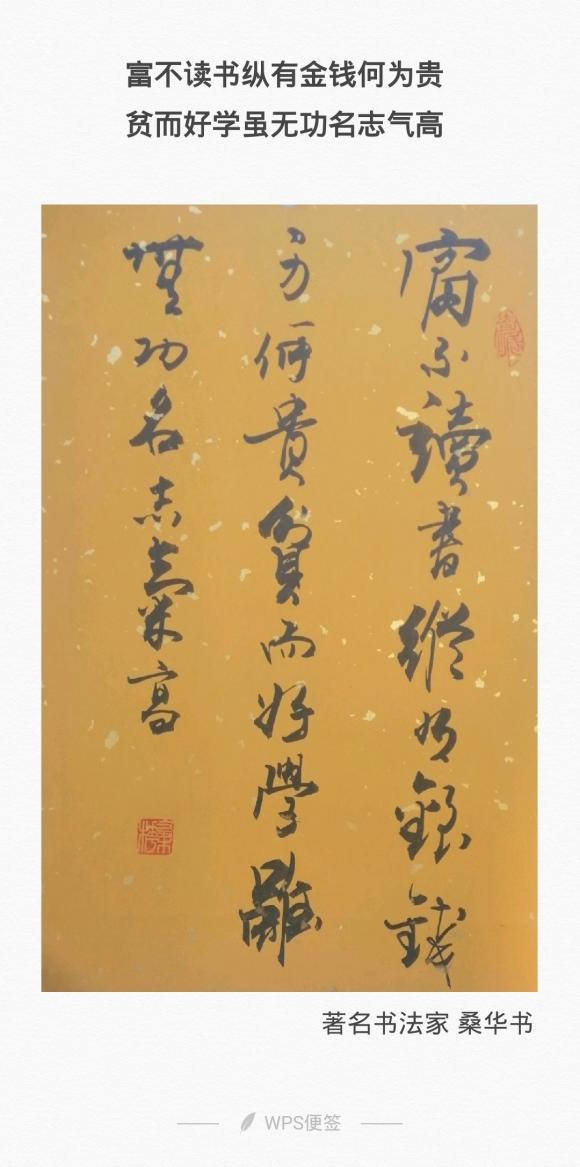 富不读书纵有金钱何为贵
贫而好学虽无功名志气高
富不讀書縱有銀錢
何貴貧而好學雖
無功名志氣高
著名书法家 桑华书
WPS便签